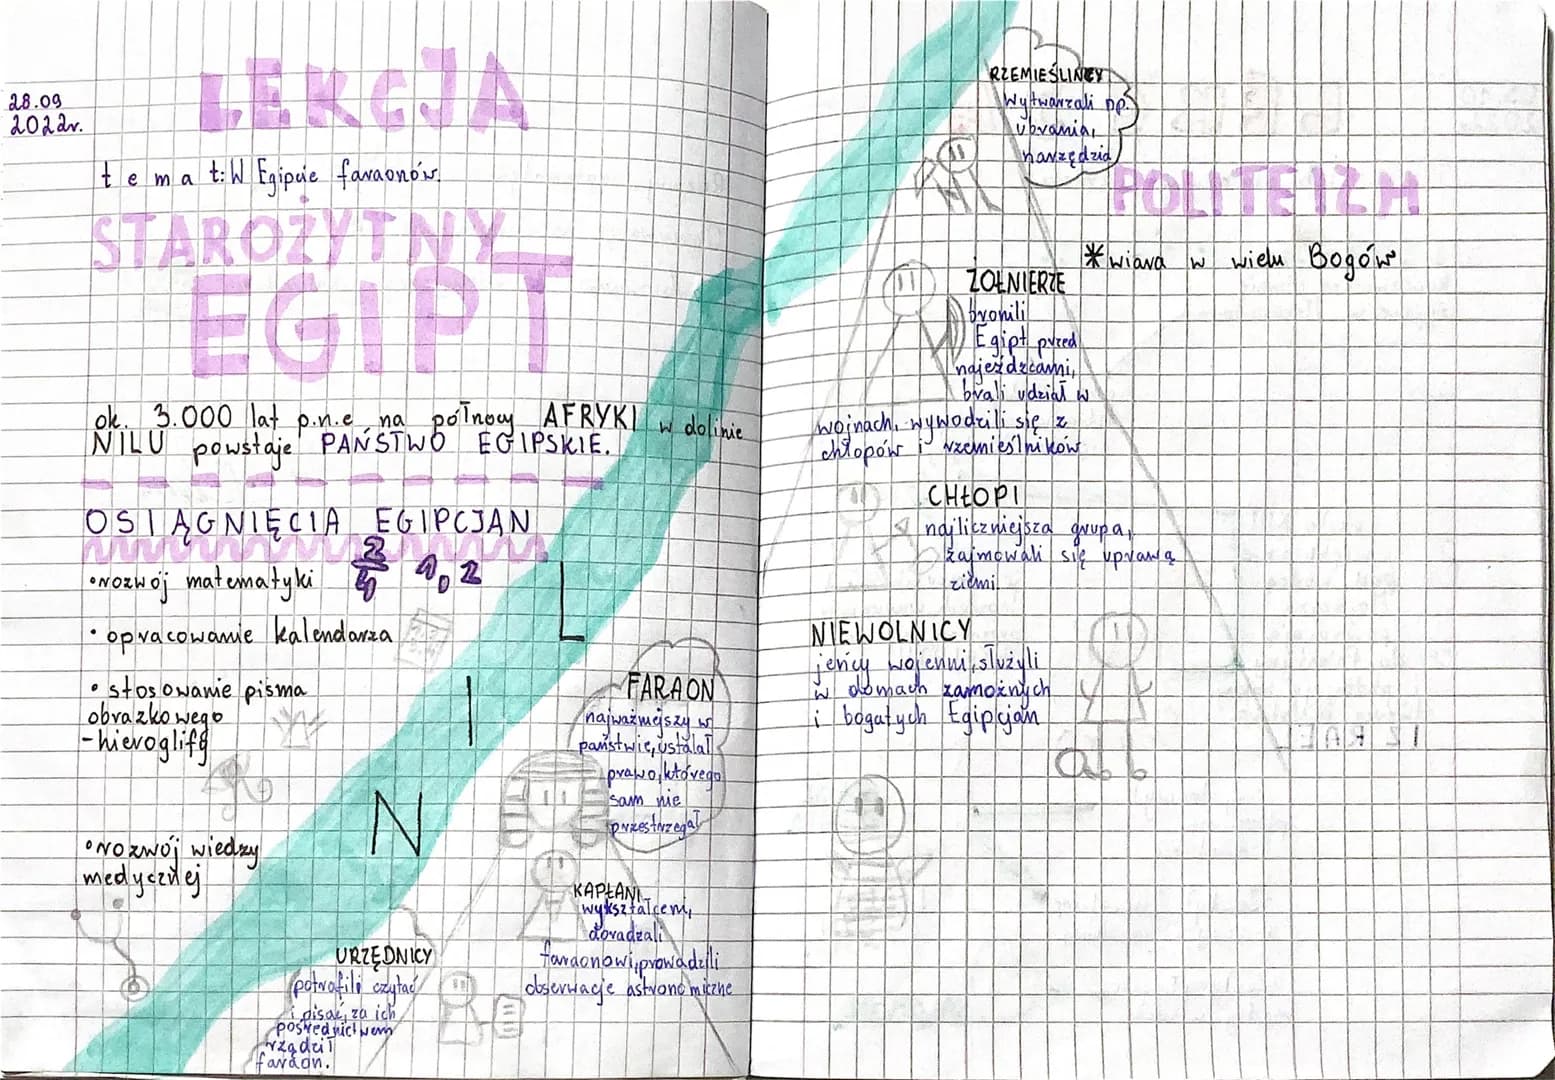 28.09
2022r.
LEKCJA
temat: W Egipcie faraonów.
STAROŻYTNY
EGIPT
ok. 3.000 lat p.n.e na północy AFRYKI w dolinie
NILU powstaje PAŃSTWO EGIPSKIE.
OSIĄGNIĘCIA EGIPCJAN
•rozwój matematyki 2/4 1,2
• opracowanie kalendarza
• stosowanie pisma
obrazkowego
-hieroglify
•rozwój wiedzy
medycznej
NIL
FARAON
najważniejszy w
państwie, ustalał
prawo, którego
sam nie
przestrzegał
KAPŁANI
wykształceni,
doradzali
faraonowi, prowadzili
obserwacje astronomiczne
URZĘDNICY
potrafili czytać
i pisać, za ich
pośrednictwem
rządził
faraon.
RZEMIEŚLINCY
Wytwarzali np.
ubrania,
narzędzia
ŻOŁNIERZE
bronili
Egipt przed
najeźdzcami,
brali udział w
wojnach, wywodzili się z
chłopów i rzemieślników
CHŁOPI
najliczniejsza grupa,
zajmowali się uprawą
ziemi.
NIEWOLNICY
jeńcy wojenni, służyli
w domach zamożnych
i bogatych Egipcjan
POLITEIZM
*wiara w wielu Bogów